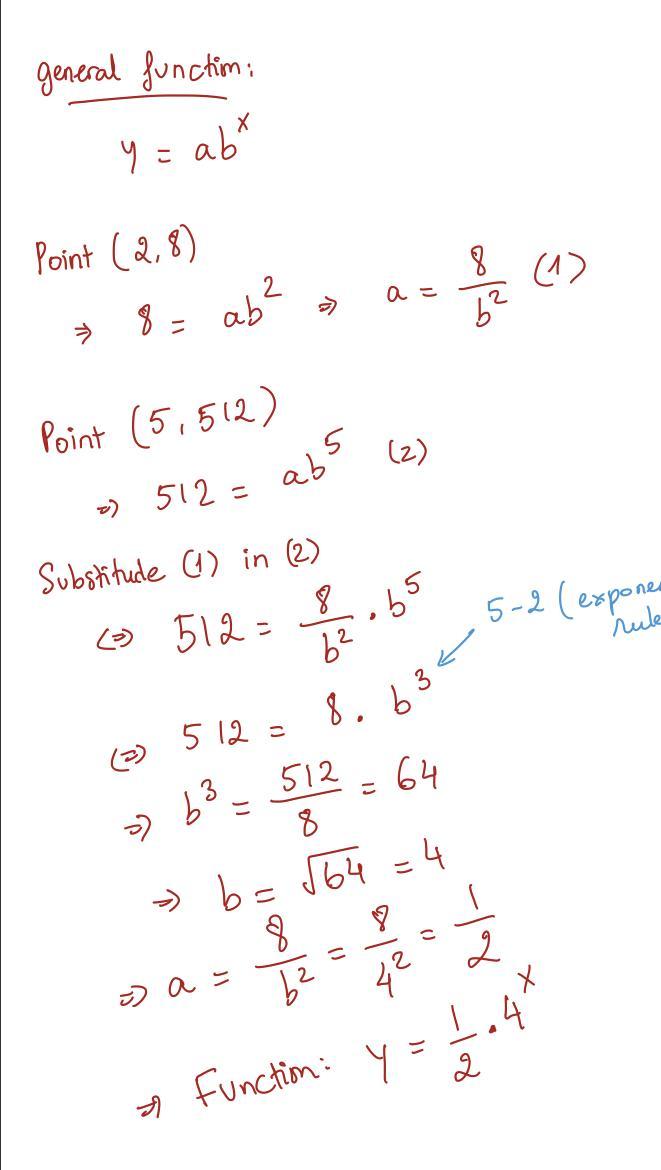 general function:
y = ab^x
Point (2,8)
⇒ 8 = ab^2 ⇒ a = 8/b^2 (1)
Point (5,512)
⇒ 512 = ab^5 (2)
Substitude (1) in (2)
⇔ 512 = 8/b^2 . b^5
5-2 (expone
rule
⇔ 512 = 8 . b^3
⇒ b^3 = 512/8 = 64
⇒ b = √64 = 4
⇒ a = 8/b^2 = 8/4^2 = 1/2
⇒ Function: y = 1/2 . 4^x